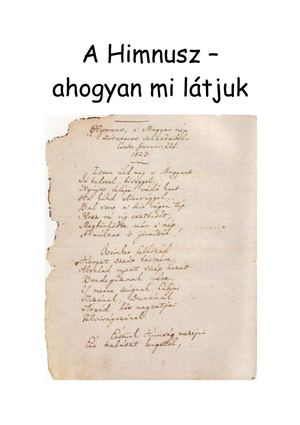 A Himnusz –
ahogyan mi látjuk
Hymnus, a Magyar nép
zivataros századaiból.
Cseke Január 22d.
1823
Isten áld meg a Magyart
Jó kedvel, bőséggel,
Nyújts feléje védő kart
Ha küzd ellenséggel,
Bal sors a kit régen tép
Hozz rá víg esztendőt,
Megbűnhődte már e nép
A múltat s jövendőt.
Őseinket felhozád
Kárpát szent bérczére,
Általad nyert szép hazát
Bendegúznak vére
S merre zúgnak habjai
Tiszának, Dunának
Árpád hős magzatjai
Felvirágozának.
Értünk Kunság mezején
Ért kalászt lengettél,